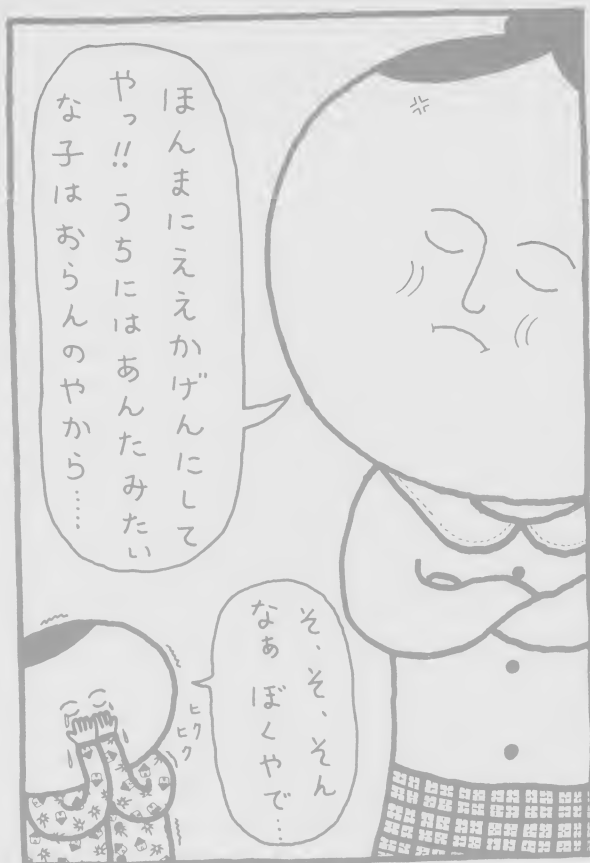 ほんまにええかげんにして
やっ!!うちにはあんたみたい
な子はおらんのやから……
そ、そ、そん
なぁ ぼくやで…
ヒク
ヒク